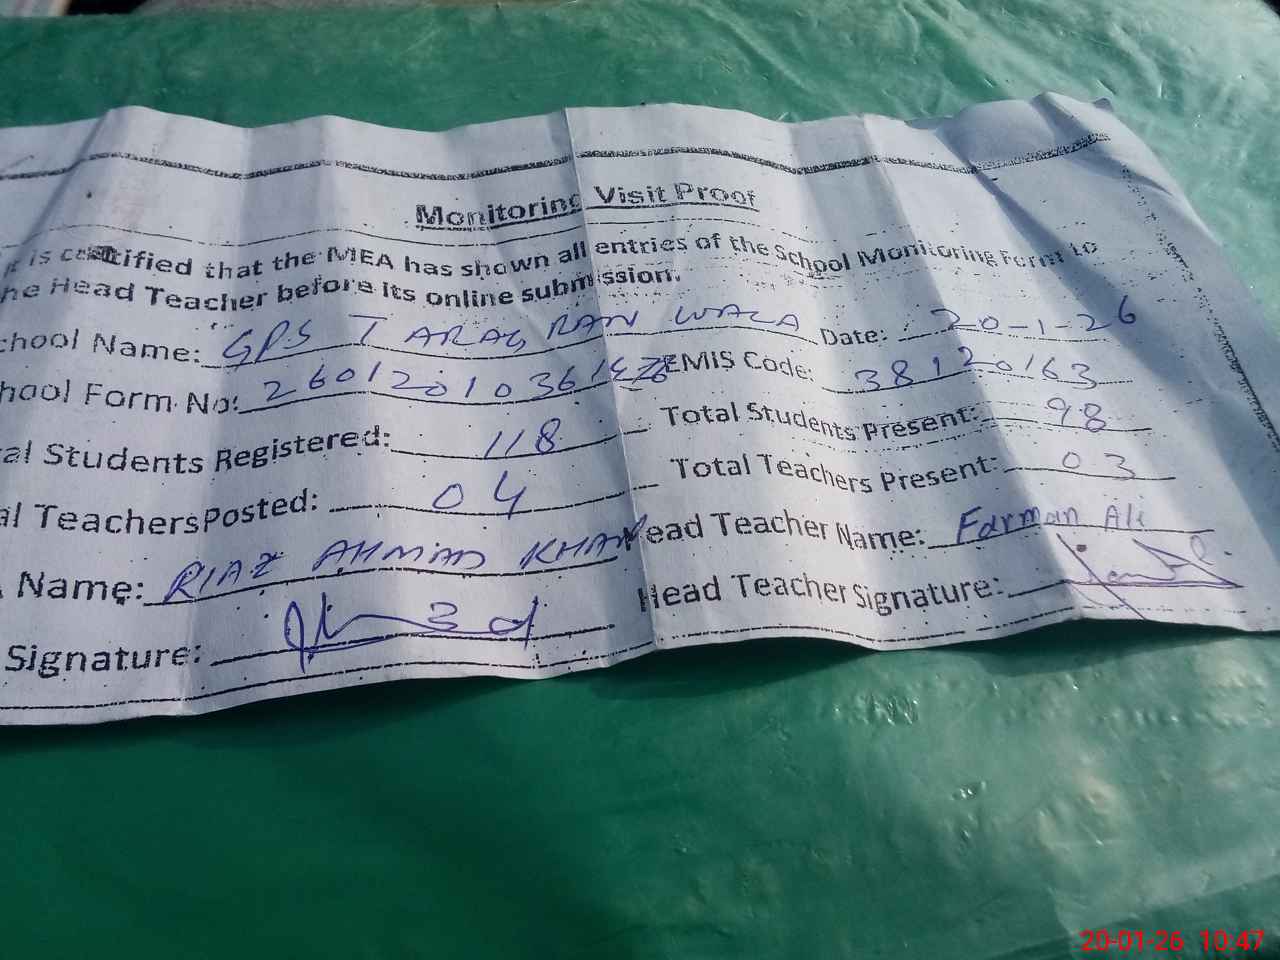 Monitoring Visit Proof
It is certified that the MEA has shown all entries of the School Monitoring Format to
he Head Teacher before its online submission.
chool Name: GPS TARAG RAN WALA Date: 20-1-26
hool Form No: EMIS Code: 38120163
al Students Registered: 118 Total Students Present: 98
al Teachers Posted: 04 Total Teachers Present: 03
Name: RIAZ AHMAD KHAN Head Teacher Name: Farman Ali
Signature: Head Teacher Signature:
20-01-26 10:47